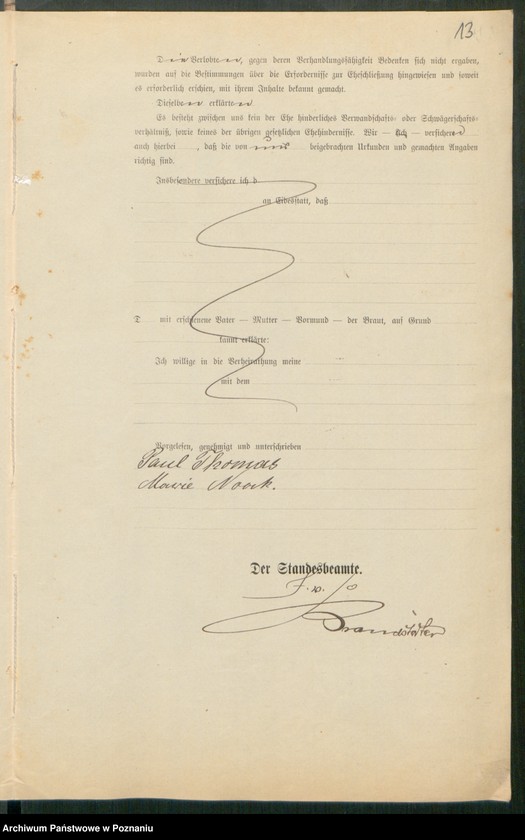 13
Die Verlobten, gegen deren Verhandlungsfähigkeit Bedenken sich nicht ergaben,
wurden auf die Bestimmungen über die Erfordernisse zur Eheschließung hingewiesen und soweit
es erforderlich erschien, mit ihrem Inhalte bekannt gemacht.
Dieselben erklärten
Es besteht zwischen uns kein der Ehe hinderliches Verwandschafts- oder Schwägerschafts-
verhältniß, sowie keines der übrigen gesetzlichen Ehehindernisse. Wir — Ich — versichern
auch hierbei , daß die von uns beigebrachten Urkunden und gemachten Angaben
richtig sind.
Insbesondere versichere ich d
an Eidesstatt, daß
D mit erschienene Vater — Mutter — Vormund — der Braut, auf Grund
kannt erklärte:
Ich willige in die Verheirathung meine
mit dem
Vorgelesen, genehmigt und unterschrieben
Paul Thomas
Marie Noack.
Der Standesbeamte.
Brandstädter
Archiwum Państwowe w Poznaniu